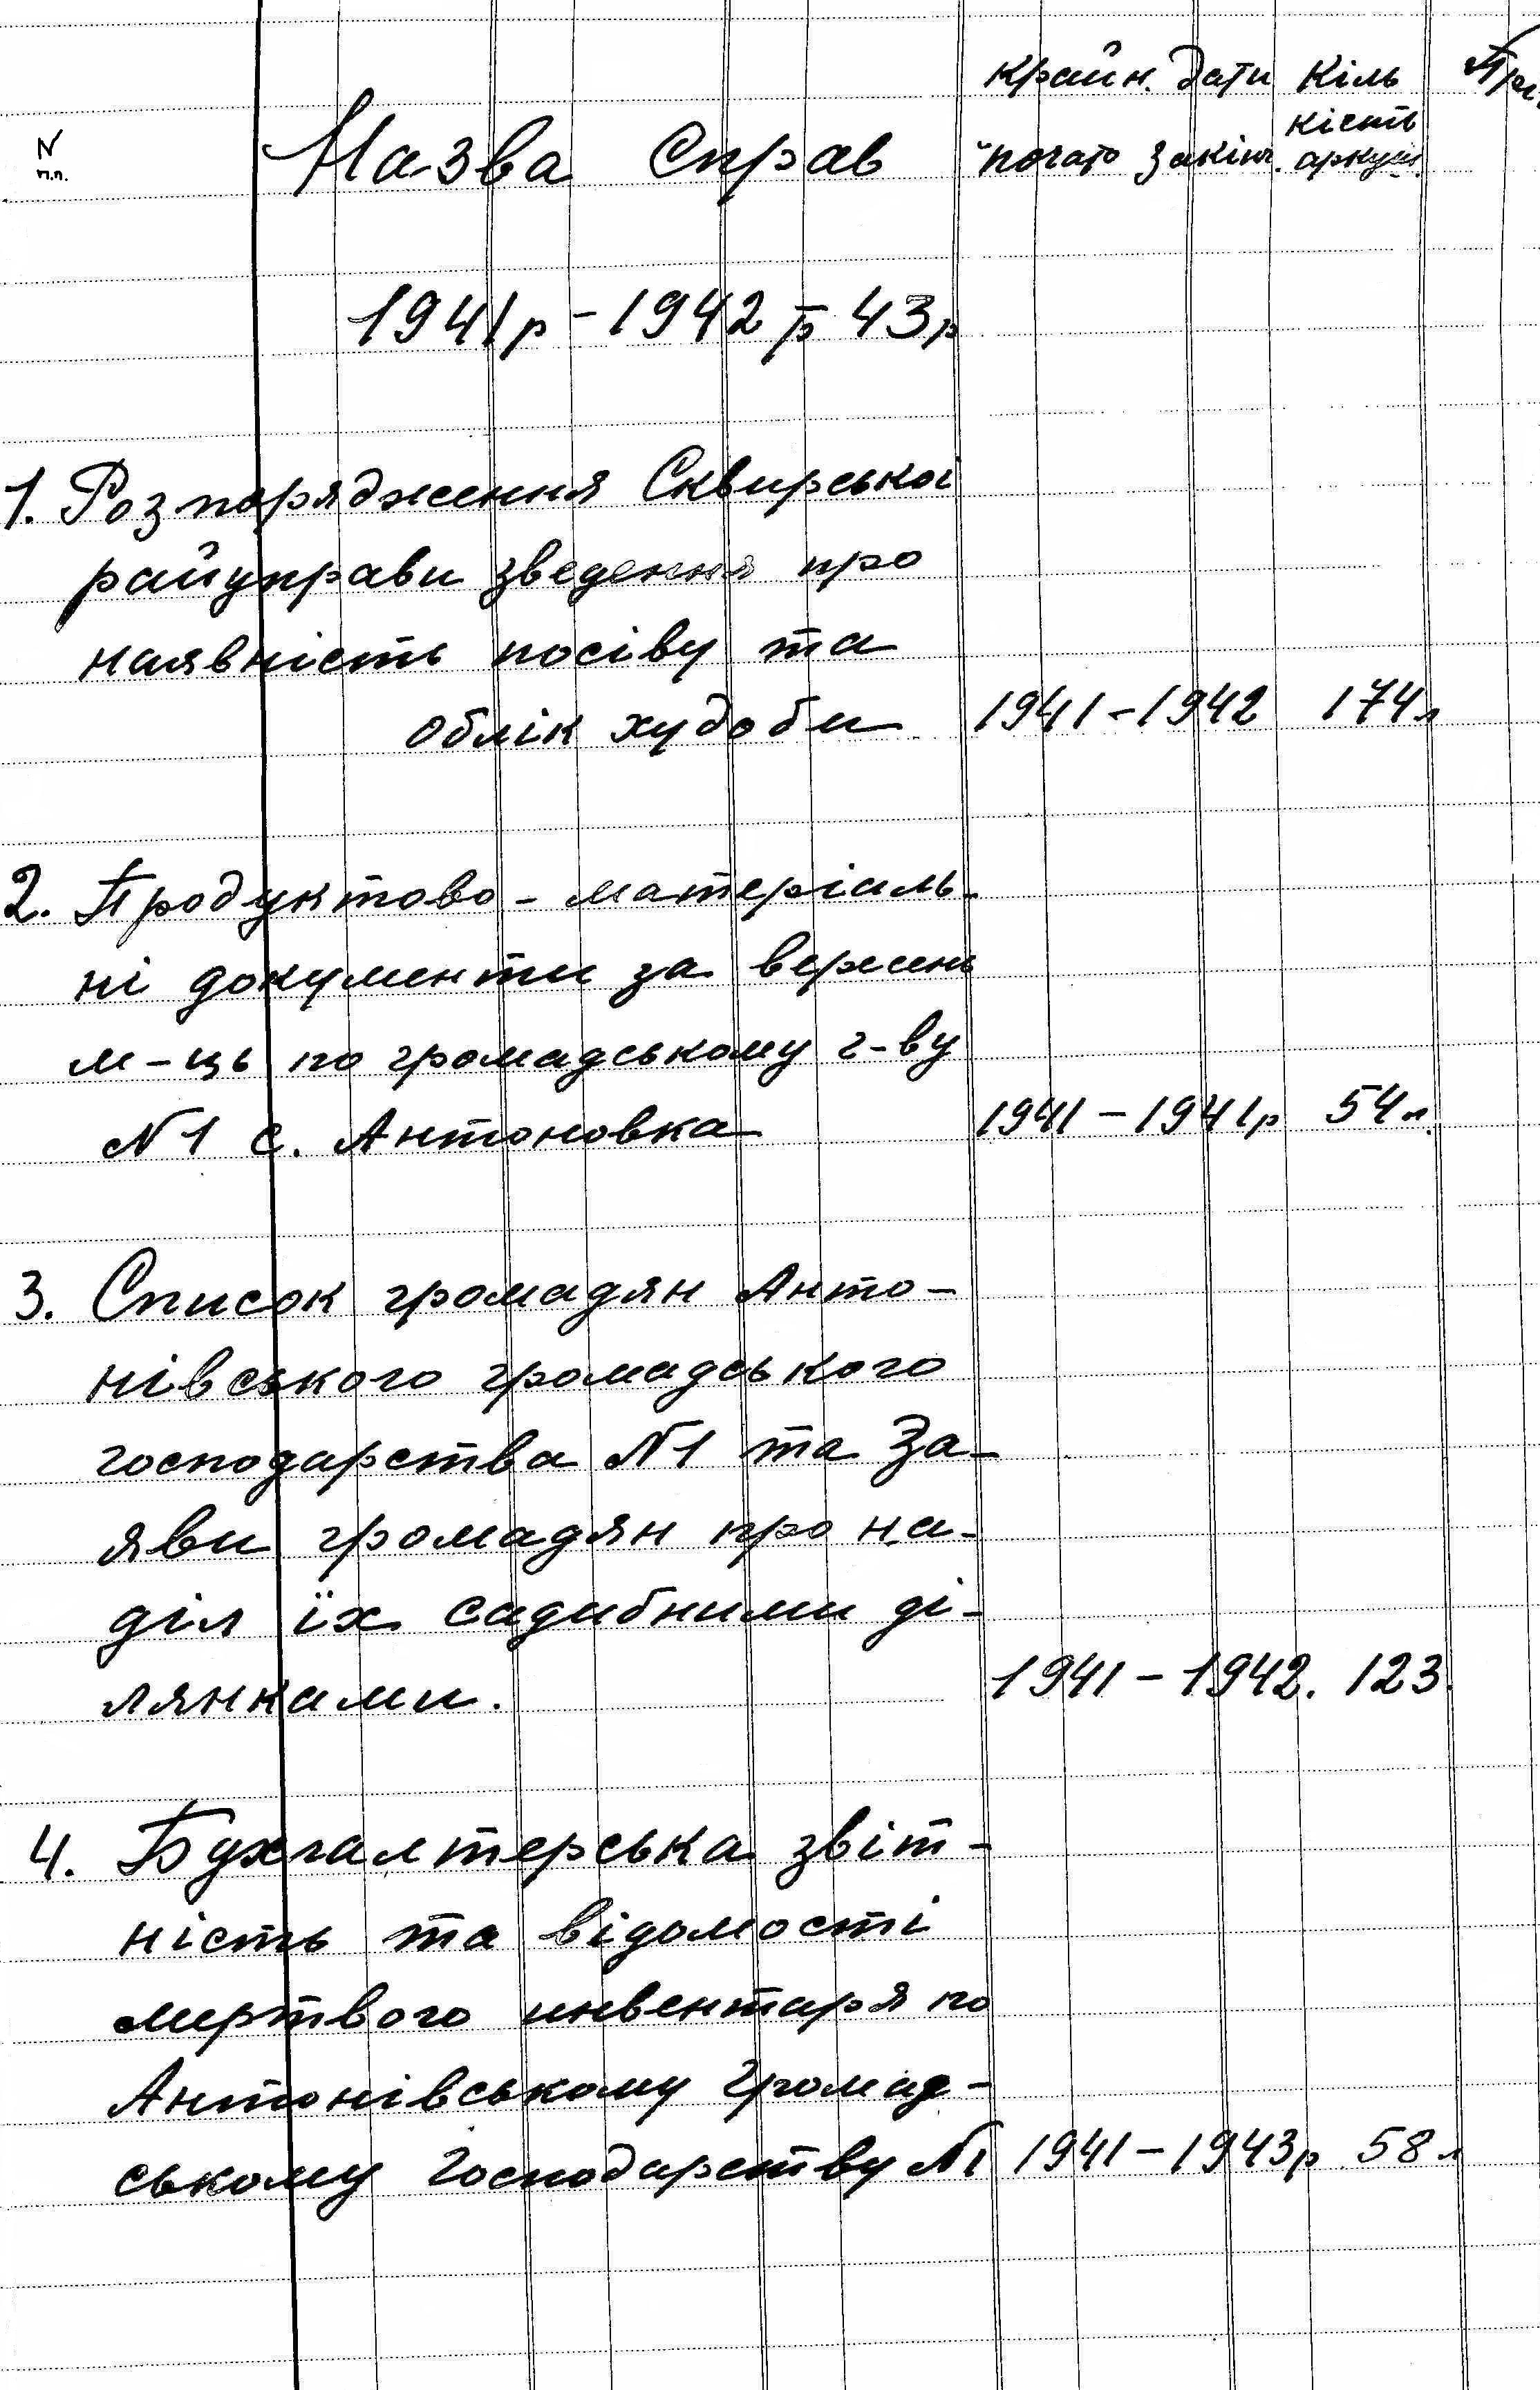 Крайн. дати Кіль
кість
N п.п. Назва Справ почато закінч. аркуш.
1941р - 1942р 43р
1. Розпорядження Сквирської
райуправи зведення про
наявність посіву та
облік худоби 1941-1942 174л
2. Продуктово-матеріаль-
ні документи за вересень
м-ць по громадському г-ву
N1 с. Антоновка 1941-1941р 54л.
3. Список громадян Анто-
нівського громадського
господарства N1 та За-
яви громадян про на-
діл їх садибними ді-
лянками. 1941-1942. 123.
4. Бухгалтерська звіт-
ність та відомості
мертвого инвентаря по
Антонівському Громад-
ському Господарству N1 1941-1943р 58л